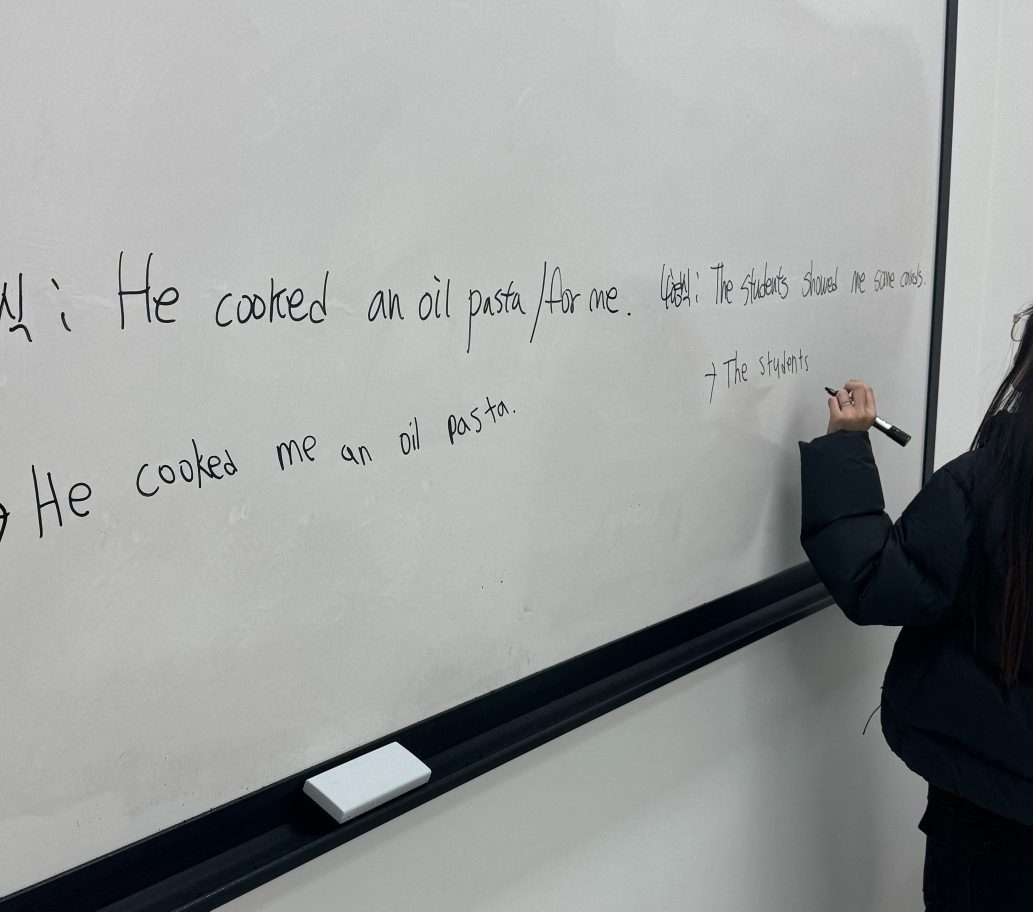 : He cooked an oil pasta / for me.
→ He cooked me an oil pasta.
: The students showed me some cards.
→ The students